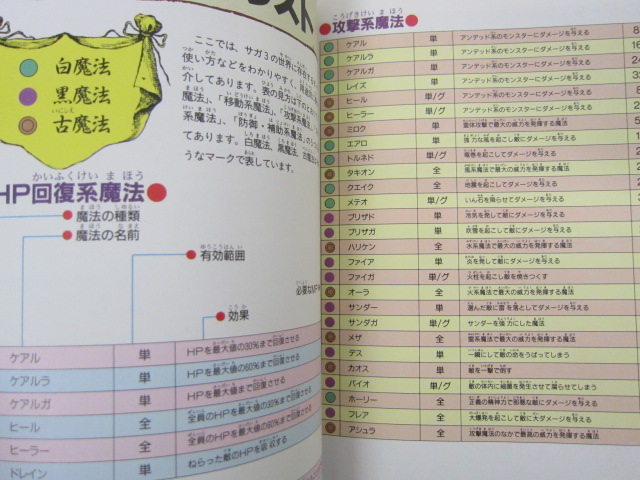 スト
ここでは、サガ3の世界に存在する
使い方などをわかりやすく、
介してあります。表の見方は下のとおり
魔法」、「移動系魔法」、「攻撃系魔法」
系魔法」、「防御・補助系魔法」の
てあります。白魔法、黒魔法、古魔法は
うなマークで表しています。
白魔法
黒魔法
いにしえ
古魔法
かいふくけい ま ほう
HP回復系魔法
魔法の種類
魔法の名前
ゆうこうはん い
有効範囲
必要なMP
こう か
効果
ケアル 単 HPを最大値の30%まで回復させる
ケアルラ 単 HPを最大値の60%まで回復させる
ケアルガ 単 HPを最大値まで回復させる
ヒール 全 全員のHPを最大値の30%まで回復させる
ヒーラー 全 全員のHPを最大値の60%まで回復させる
ドレイン 単 ねらった敵のHPを吸収する
こうげきけい ま ほう
攻撃系魔法
ケアル 単 アンデッド系のモンスターにダメージを与える 8
ケアルラ 単 アンデッド系のモンスターにダメージを与える 16
ケアルガ 単 アンデッド系のモンスターにダメージを与える 24
レイズ 単 アンデッド系のモンスターにダメージを与える
ヒール 単/グ アンデッド系のモンスターにダメージを与える
ヒーラー 単/グ アンデッド系のモンスターにダメージを与える
ミロク 単 単体攻撃で最大の威力を発揮する魔法
エアロ 単 強力な風を起こし敵にダメージを与える
トルネド 単/グ 竜巻を起こしてダメージを与える
タキオン 全 風系魔法で最大の威力を発揮する魔法
クエイク 全 地震を起こしてダメージを与える
メテオ 単/グ いん石を降らせてダメージを与える
ブリザド 単 冷気を発して敵にダメージを与える
ブリザガ 単 吹雪を起こして敵にダメージを与える
ハリケン 全 水系魔法で最大の威力を発揮する魔法
ファイア 単 炎を発して敵にダメージを与える
ファイガ 単/グ 火柱を起こし敵を焼きつくす
オーラ 全 火系魔法で最大の威力を発揮する魔法
サンダー 単 選んだ敵に雷を落としてダメージを与える
サンダガ 単/グ サンダーを強力にした魔法
メザ 全 雷系魔法で最大の威力を発揮する魔法
デス 単 一瞬にして敵の命をうばってしまう
カオス 単 敵を一撃で倒す
バイオ 単/グ 敵の体内に細菌を発生させて腐らせてしまう
ホーリー 全 正義の精神力で邪悪な敵にダメージを与える
フレア 全 大爆発を起こして敵に大ダメージを与える
アシュラ 全 攻撃魔法のなかで最高の威力を発揮する魔法